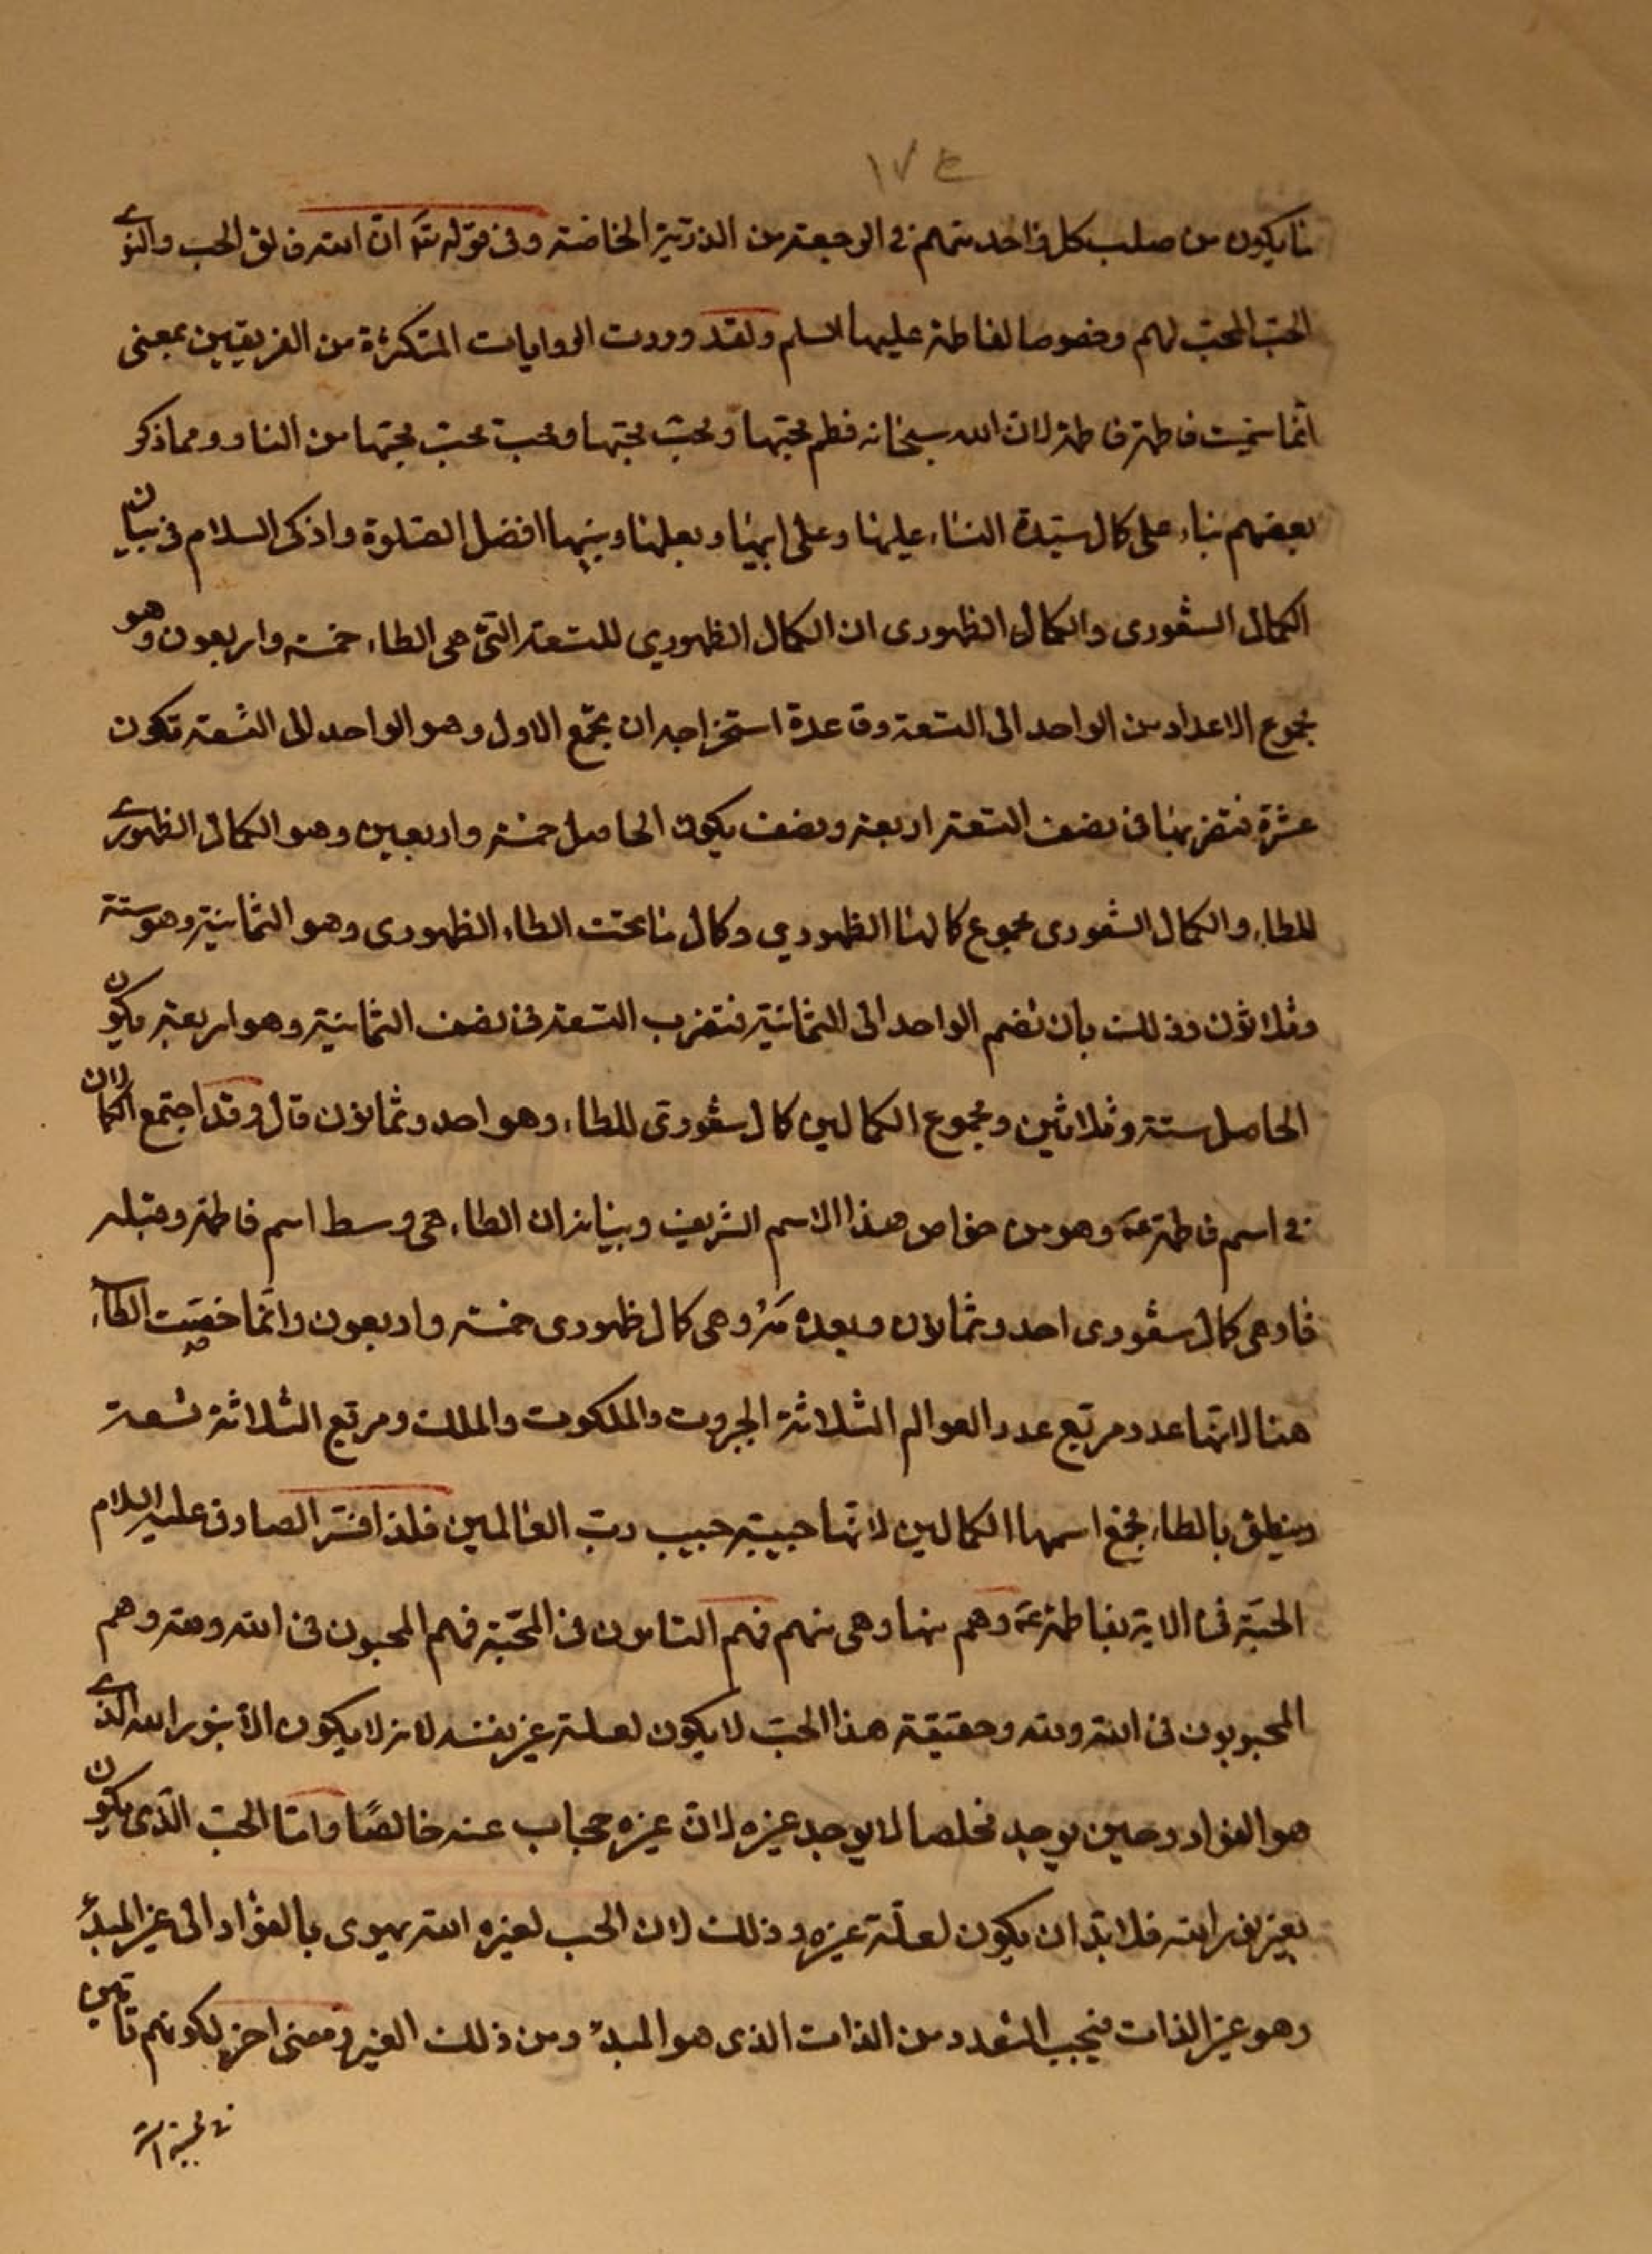 ١٧٤
ما يكون من صلب كل واحد منهم في الرجعة من الذرية الخاصة وفي قوله تع ان الله فالق الحب والنوى
الحب المحب لهم وخصوصا لفاطمة عليها السلم ولقد وردت الروايات المتكثرة من الفريقين بمعنى
انما سميت فاطمة فاطمة لان الله سبحانه فطم محبها ومحب محبها ومحب محب محبها من النار ومما ذكر
بعضهم بناء على كمال سيدة النساء عليها وعلى ابيها وبعلها وبنيها افضل الصلوة واذكى السلام في بيان
الكمال الشعورى والكمال الظهورى ان الكمال الظهوري للتسعة التي هي الطاء خمسة واربعون وهو
مجموع الاعداد من الواحد الى التسعة وقاعدة استخراجه ان تجمع الاول وهو الواحد الى التسعة تكون
عشرة فتضربها في نصف التسعة اربعة ونصف يكون الحاصل خمسة واربعين وهو الكمال الظهورى
للطاء والكمال الشعورى مجموع كمالها الظهوري وكمال ما تحت الطاء الظهورى وهو الثمانية وهو ستة
وثلاثون وذلك بان تضم الواحد الى الثمانية فتضرب التسعة في نصف الثمانية وهو اربعة يكون
الحاصل ستة وثلاثين ومجموع الكمالين كمال شعورى للطاء وهو احد وثمانون قال وقد اجتمع الكمالان
في اسم فاطمة ع وهو من خواص هذا الاسم الشريف وبيانه ان الطاء هي وسط اسم فاطمة وقبله
فا وهي كمال شعورى احد وثمانون وبعده مه وهى كمال ظهورى خمسة واربعون وانما خصت الطاء
هنا لانها عدد مربع عدد العوالم الثلاثة الجبروت والملكوت والملك ومربع الثلاثة تسعة
وينطق بالطاء فجمع اسمها الكمالين لانها حبيبة حبيب رب العالمين فلذا فسر الصادق عليه السلام
الحبة في الاية بفاطمة ع وهم منها وهي منهم فهم التامون في المحبة فهم المحبون في الله ولله وهم
المحبوبون في الله ولله وحقيقة هذا الحب لا يكون لعلة غير نفسه لانه لا يكون الا بنور الله الذى
هو الفؤاد وحين يوجد مخلصا لا يوجد غيره لان غيره حجاب عنه خالصًا واما الحب الذى يكون
بغير نور الله فلا بد ان يكون لعلة غيره وذلك لان الحب لغيره الله يهوى بالفؤاد الى غير المبدء
وهو غير الذات فيجب التعدد من الذات الذى هو المبدء ومن ذلك الغير ومعنى اخر لكونهم تامين
في محبة الله